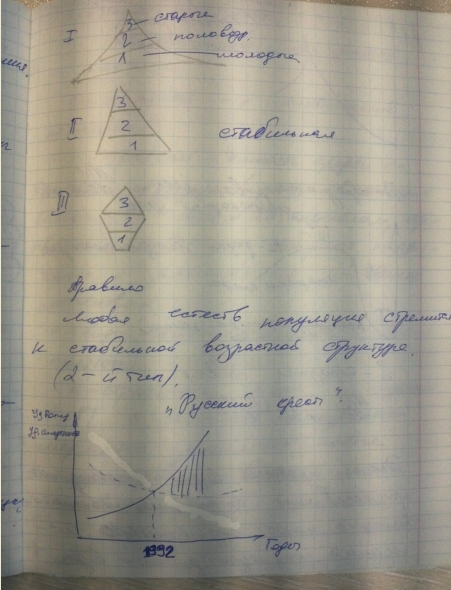 I
3 старые
2 половозр.
1 молодые
II
3
2
1
стабильная
III
3
2
1
Правило
Любая естеств популяция стремится
к стабильной возрастной структуре.
(2-й тип).
"Русский крест".
1992
Годы